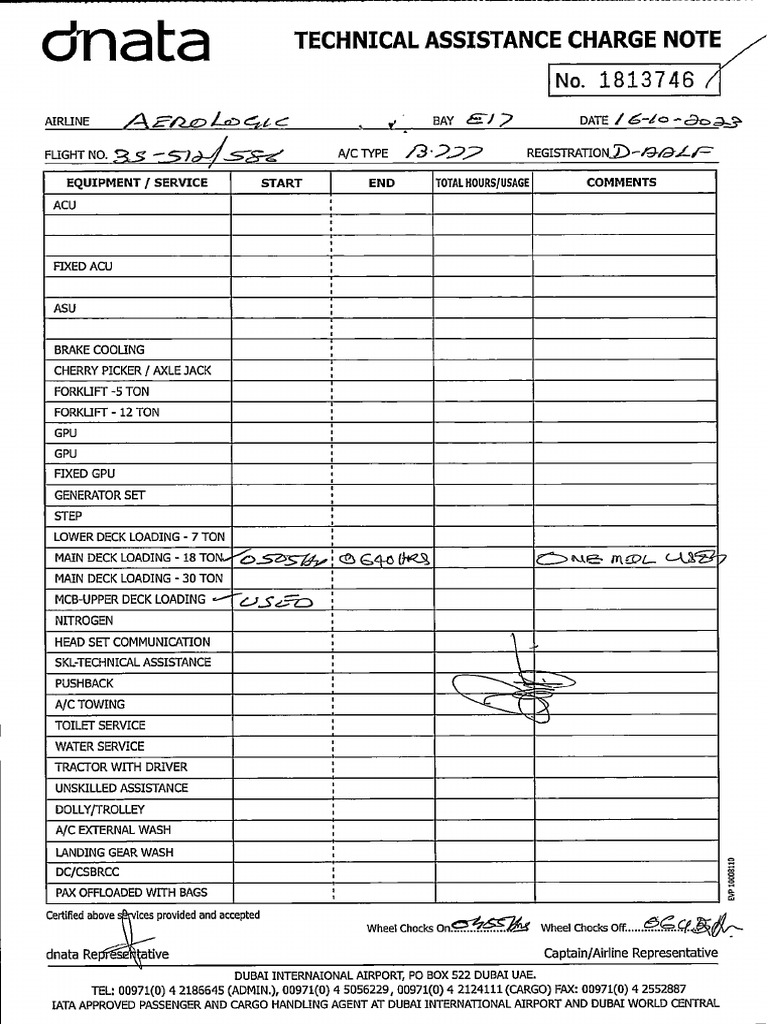 dnata
TECHNICAL ASSISTANCE CHARGE NOTE
No. 1813746
AIRLINE AEROLOGIC BAY E17 DATE 16-10-2023
FLIGHT NO. 3S-512/586 A/C TYPE B.777 REGISTRATION D-AALF
EQUIPMENT / SERVICE START END TOTAL HOURS/USAGE COMMENTS
ACU
FIXED ACU
ASU
BRAKE COOLING
CHERRY PICKER / AXLE JACK
FORKLIFT -5 TON
FORKLIFT - 12 TON
GPU
GPU
FIXED GPU
GENERATOR SET
STEP
LOWER DECK LOADING - 7 TON
MAIN DECK LOADING - 18 TON 0505Hr 0640HRS ONE MDL USED
MAIN DECK LOADING - 30 TON
MCB-UPPER DECK LOADING USED
NITROGEN
HEAD SET COMMUNICATION
SKL-TECHNICAL ASSISTANCE
PUSHBACK
A/C TOWING
TOILET SERVICE
WATER SERVICE
TRACTOR WITH DRIVER
UNSKILLED ASSISTANCE
DOLLY/TROLLEY
A/C EXTERNAL WASH
LANDING GEAR WASH
DC/CSBRCC
PAX OFFLOADED WITH BAGS
EVP 10008110
Certified above services provided and accepted
Wheel Chocks On 0455Hrs Wheel Chocks Off
dnata Representative Captain/Airline Representative
DUBAI INTERNAIONAL AIRPORT, PO BOX 522 DUBAI UAE.
TEL: 00971(0) 4 2186645 (ADMIN.), 00971(0) 4 5056229, 00971(0) 4 2124111 (CARGO) FAX: 00971(0) 4 2552887
IATA APPROVED PASSENGER AND CARGO HANDLING AGENT AT DUBAI INTERNATIONAL AIRPORT AND DUBAI WORLD CENTRAL